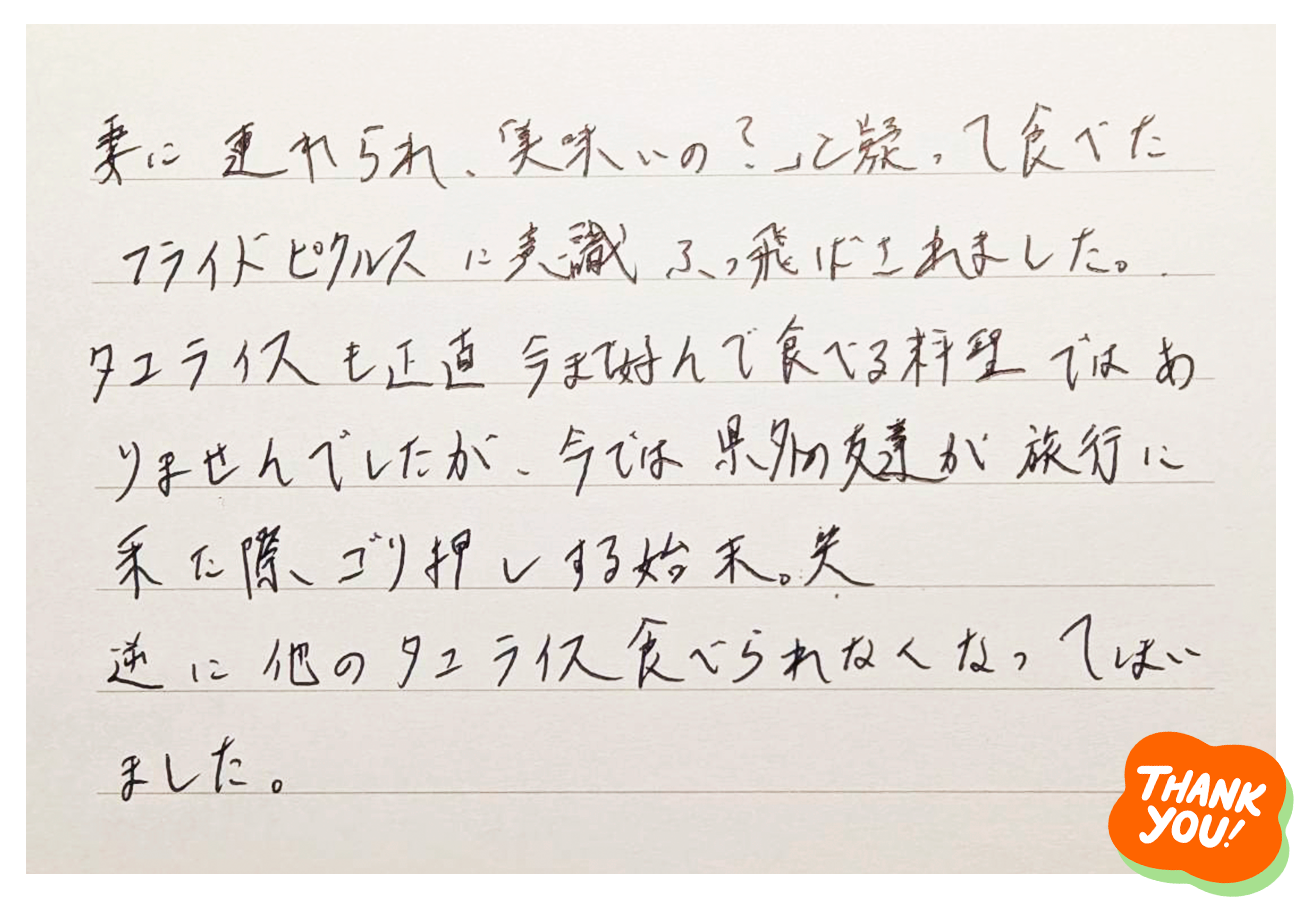 妻に連れられ、「美味いの？」と疑って食べた
フライドピクルスに意識ふっ飛ばされました。
タコライスも正直今まで好んで食べる料理ではあ
りませんでしたが、今では県外の友達が旅行に
来た際、ゴリ押しする始末。笑
逆に他のタコライス食べられなくなってしまい
ました。
THANK
YOU!